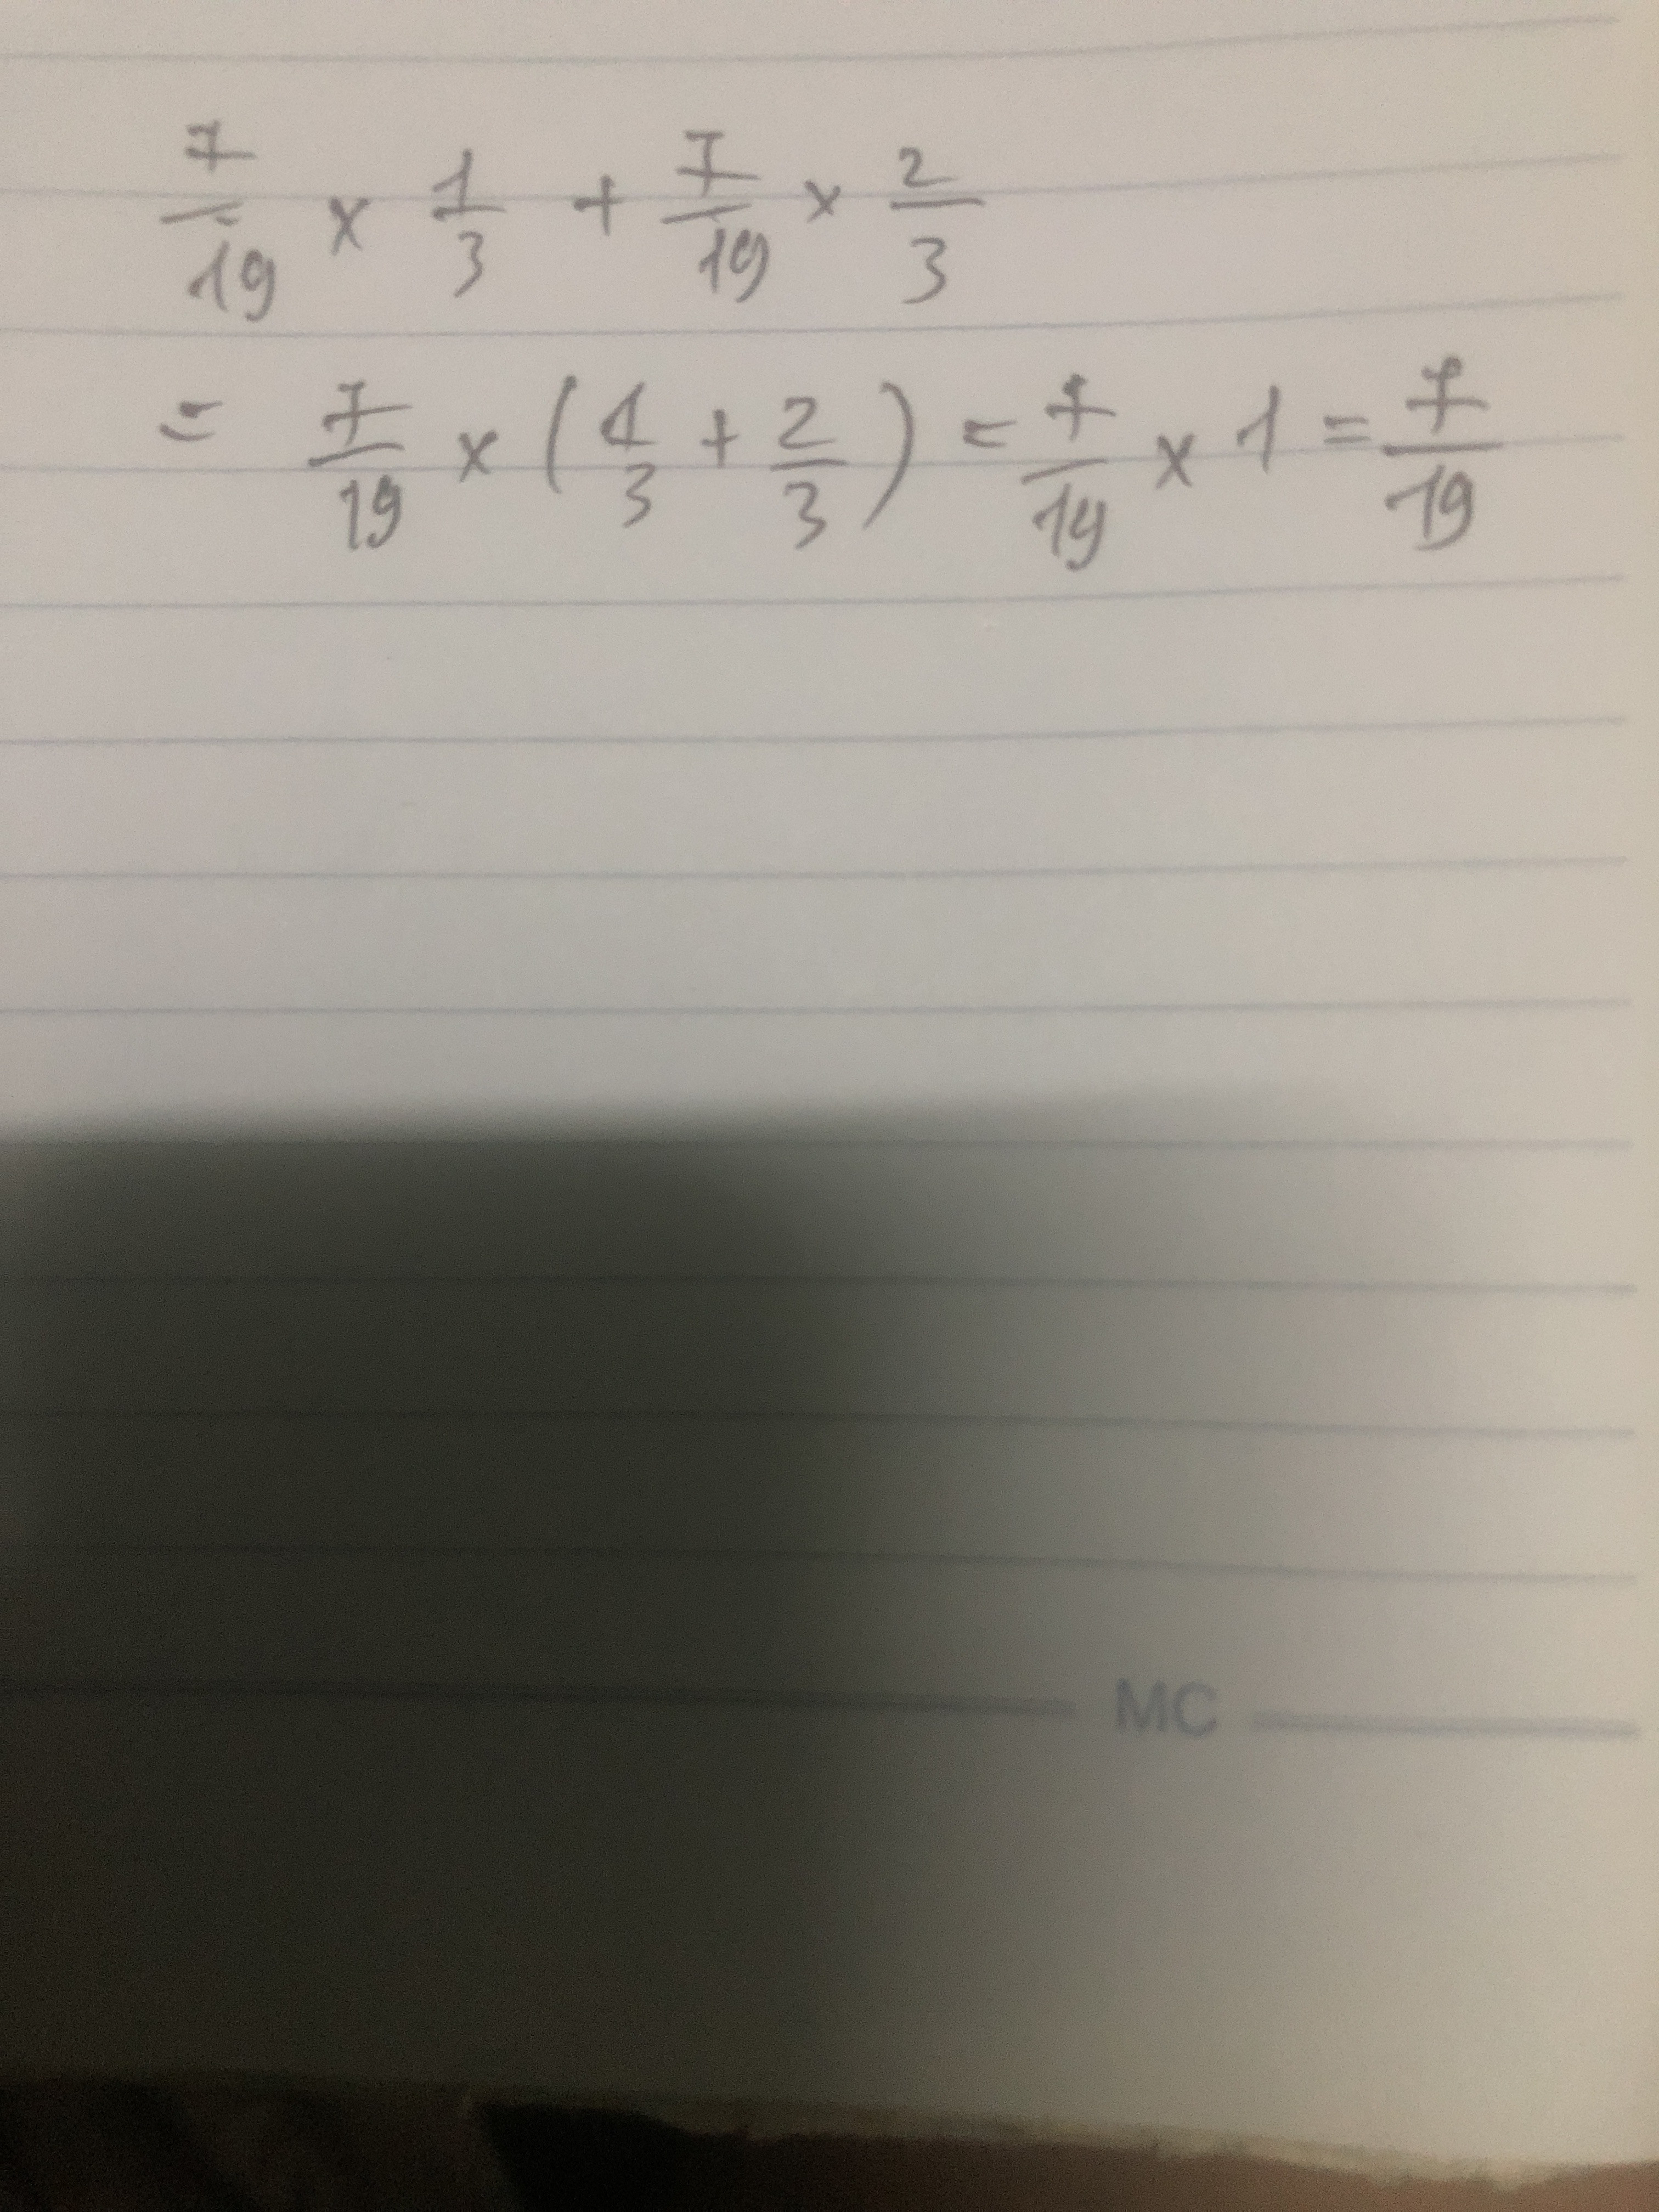 7/19 x 1/3 + 7/19 x 2/3
= 7/19 x (1/3 + 2/3) = 7/19 x 1 = 7/19
MC